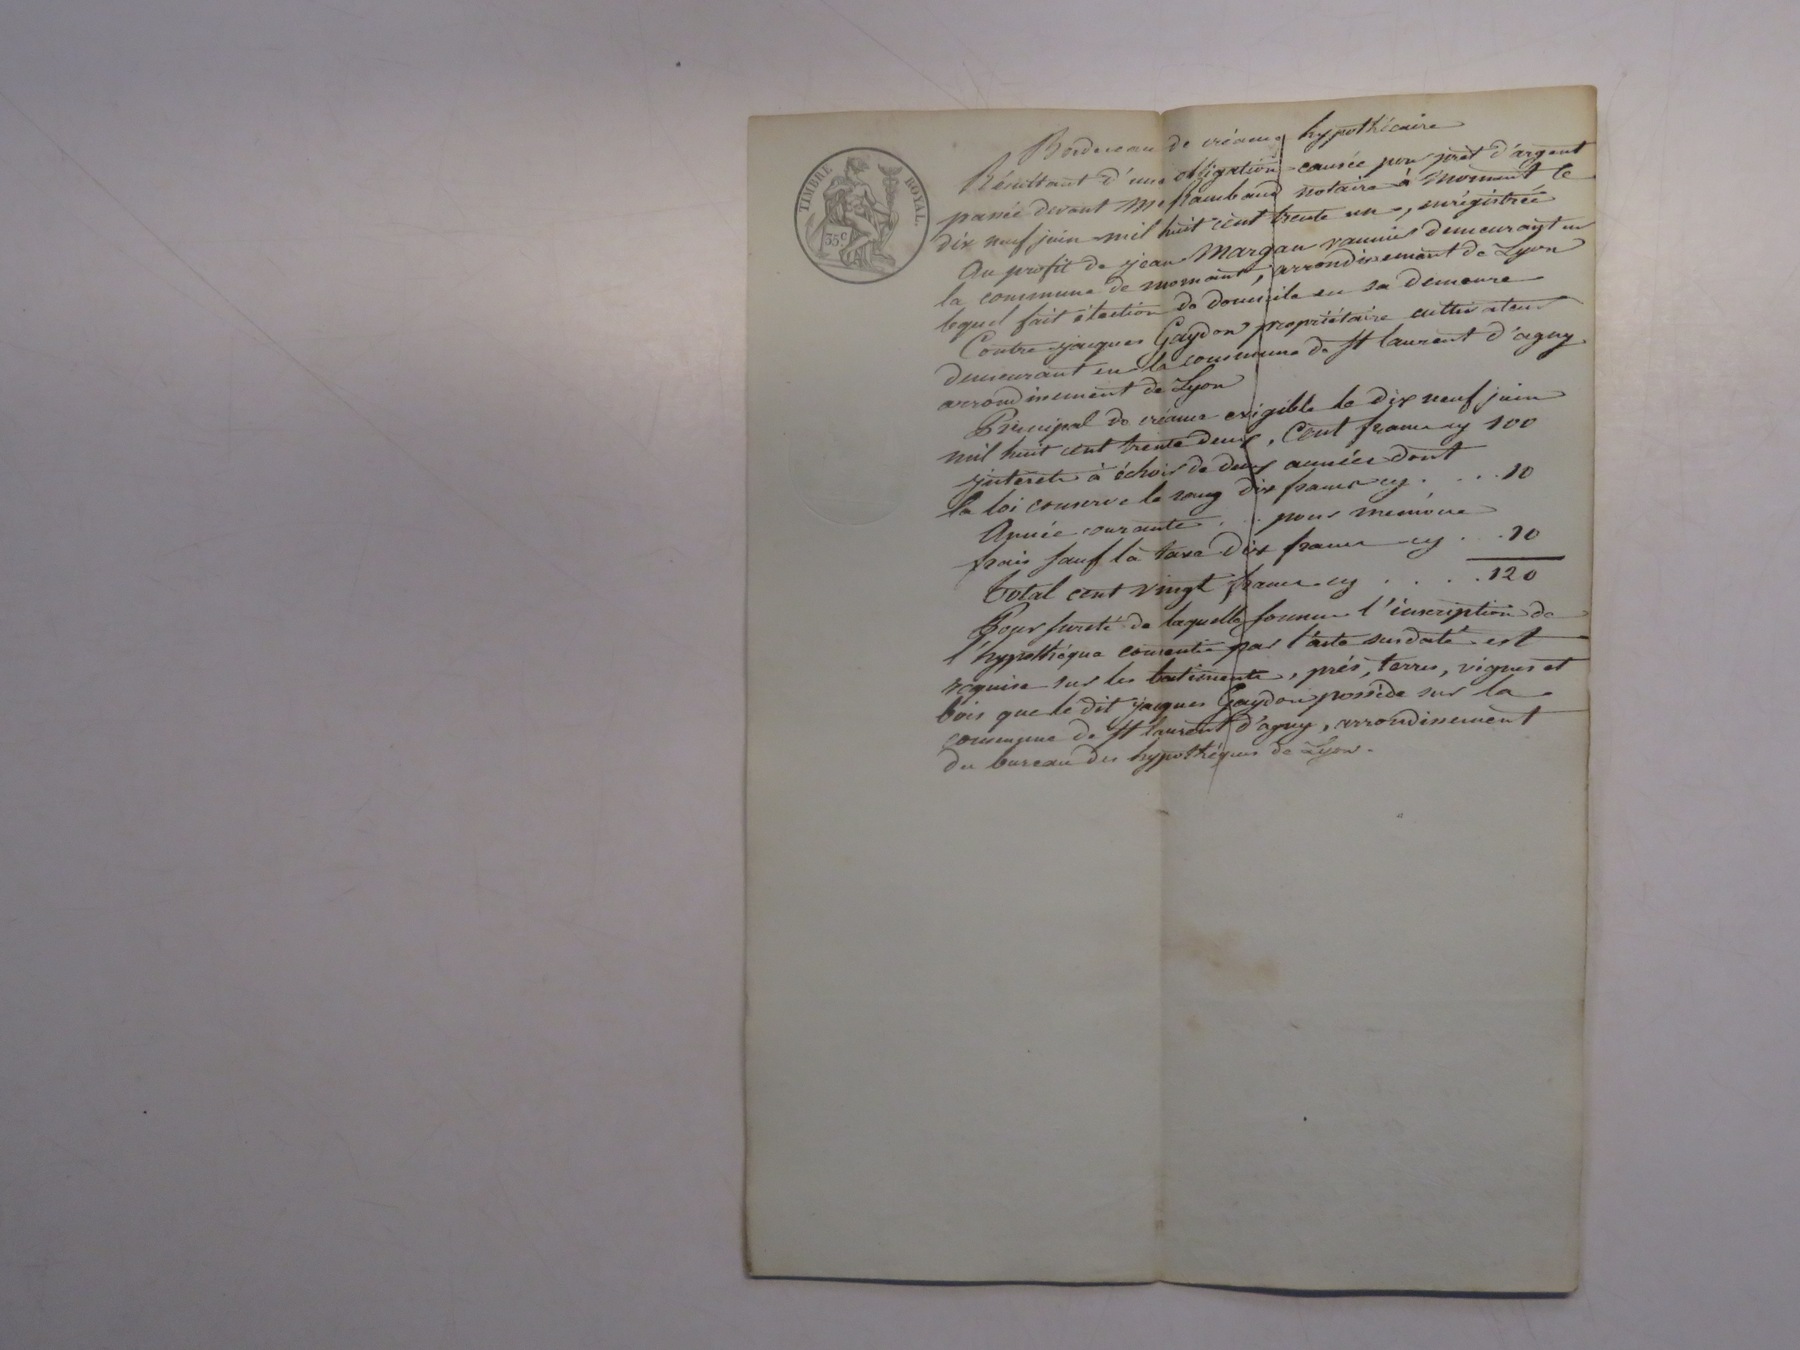 TIMBRE ROYAL.
35c
Bordereau de créance hypothécaire
Résultant d'une obligation causée pour prêt d'argent
passée devant Me flambaud notaire à mornant le
dix neuf juin mil huit cent trente un, enrégistrée
Au profit de jean Margan vannier demeurant en
la commune de mornant, arrondissement de Lyon
lequel fait élection de domicile en sa demeure
Contre jacques Gaydon propriétaire cultivateur
demeurant en la commune de St laurent d'agny
arrondissement de Lyon
Principal de créance exigible le dix neuf juin
mil huit cent trente deux, Cent francs cy 100
jnterets à échoir de deux années dont
la loi conserve le rang dix francs cy . . . 10
Année courante . . pour mémoire
frais sauf la taxe Dix francs cy . . 10
Total cent vingt francs cy . . . . 120
Pour sureté de laquelle somme l'inscription de
l'hypothéque consentie par l'acte susdaté est
requise sur les batiments, prés, terres, vignes et
bois que le dit jacques Gaydon possède sur la
commune de St laurent d'agny, arrondissement
du bureau des hypothéques de Lyon.